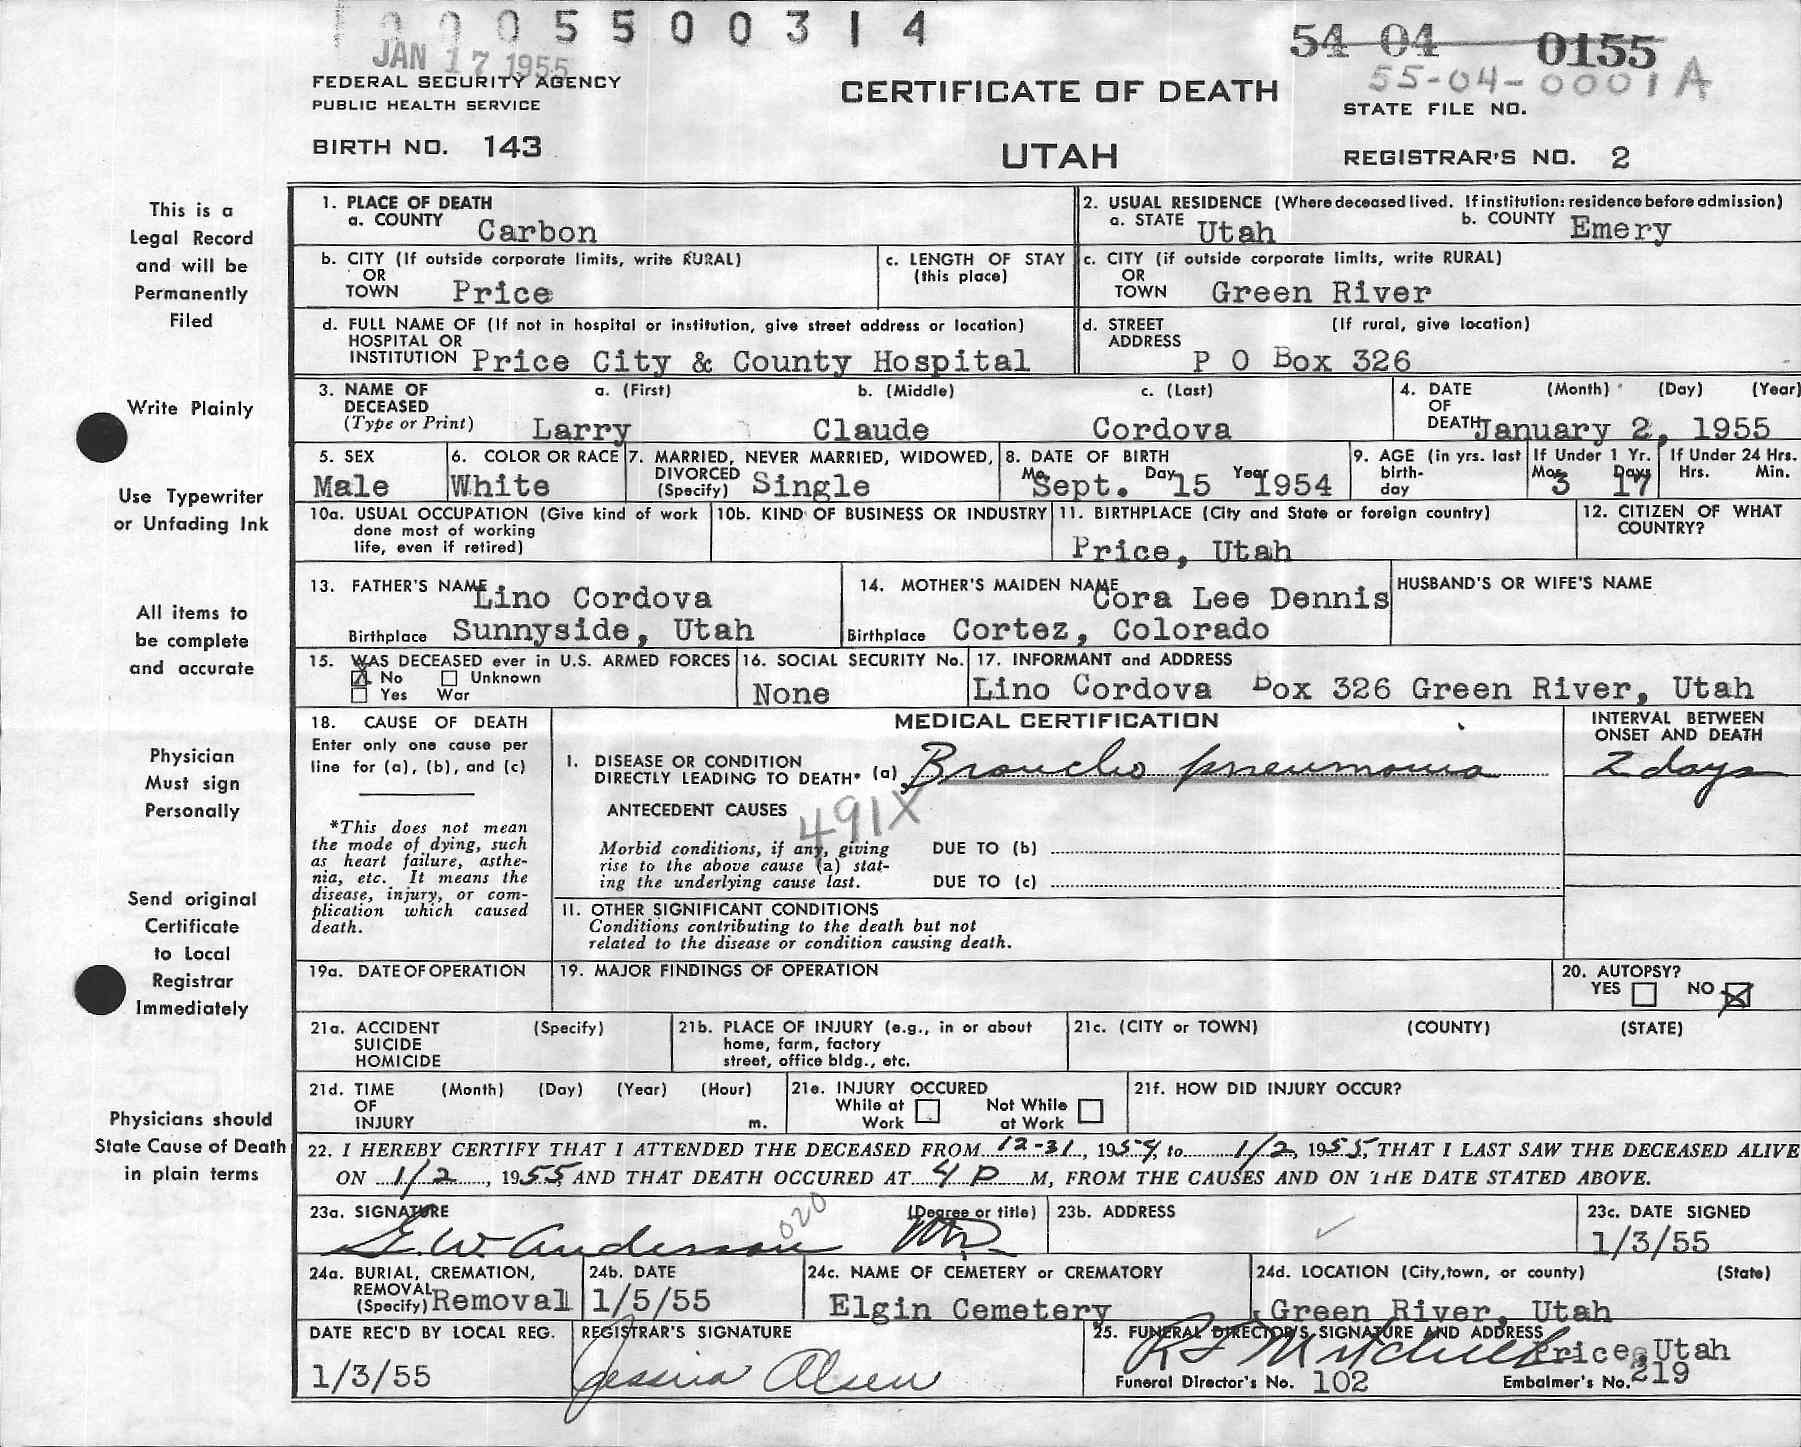 1 0 0 5 5 0 0 3 1 4
JAN 17 1955
54 04 0155
55-04-0001A
FEDERAL SECURITY AGENCY
PUBLIC HEALTH SERVICE
CERTIFICATE OF DEATH
STATE FILE NO.
BIRTH NO. 143
UTAH
REGISTRAR'S NO. 2
This is a
Legal Record
and will be
Permanently
Filed
Write Plainly
Use Typewriter
or Unfading Ink
All items to
be complete
and accurate
Physician
Must sign
Personally
Send original
Certificate
to Local
Registrar
Immediately
Physicians should
State Cause of Death
in plain terms
1. PLACE OF DEATH
a. COUNTY Carbon
2. USUAL RESIDENCE (Where deceased lived. If institution: residence before admission)
a. STATE Utah b. COUNTY Emery
b. CITY (If outside corporate limits, write RURAL)
OR
TOWN Price
c. LENGTH OF STAY
(this place)
c. CITY (if outside corporate limits, write RURAL)
OR
TOWN Green River
d. FULL NAME OF (If not in hospital or institution, give street address or location)
HOSPITAL OR
INSTITUTION Price City & County Hospital
d. STREET (If rural, give location)
ADDRESS P O Box 326
3. NAME OF DECEASED (Type or Print)
a. (First) b. (Middle) c. (Last)
Larry Claude Cordova
4. DATE (Month) (Day) (Year)
OF
DEATH January 2, 1955
5. SEX
Male
6. COLOR OR RACE
White
7. MARRIED, NEVER MARRIED, WIDOWED,
DIVORCED
(Specify) Single
8. DATE OF BIRTH
Mo. Sept. Day 15 Year 1954
9. AGE (in yrs. last
birth-
day
If Under 1 Yr.
Mos. 3 Days 17
If Under 24 Hrs.
Hrs. Min.
10a. USUAL OCCUPATION (Give kind of work
done most of working
life, even if retired)
10b. KIND OF BUSINESS OR INDUSTRY
11. BIRTHPLACE (City and State or foreign country)
Price, Utah
12. CITIZEN OF WHAT
COUNTRY?
13. FATHER'S NAME Lino Cordova
Birthplace Sunnyside, Utah
14. MOTHER'S MAIDEN NAME Cora Lee Dennis
Birthplace Cortez, Colorado
HUSBAND'S OR WIFE'S NAME
15. WAS DECEASED ever in U.S. ARMED FORCES
X No Unknown
Yes War
16. SOCIAL SECURITY No.
None
17. INFORMANT and ADDRESS
Lino Cordova Box 326 Green River, Utah
18. CAUSE OF DEATH
Enter only one cause per
line for (a), (b), and (c)
*This does not mean
the mode of dying, such
as heart failure, asthe-
nia, etc. It means the
disease, injury, or com-
plication which caused
death.
MEDICAL CERTIFICATION
I. DISEASE OR CONDITION
DIRECTLY LEADING TO DEATH* (a) Broncho pneumonia
ANTECEDENT CAUSES
491X
Morbid conditions, if any, giving
rise to the above cause (a) stat-
ing the underlying cause last.
DUE TO (b)
DUE TO (c)
II. OTHER SIGNIFICANT CONDITIONS
Conditions contributing to the death but not
related to the disease or condition causing death.
INTERVAL BETWEEN
ONSET AND DEATH
2 days
19a. DATE OF OPERATION
19. MAJOR FINDINGS OF OPERATION
20. AUTOPSY?
YES NO X
21a. ACCIDENT (Specify)
SUICIDE
HOMICIDE
21b. PLACE OF INJURY (e.g., in or about
home, farm, factory
street, office bldg., etc.
21c. (CITY or TOWN) (COUNTY) (STATE)
21d. TIME (Month) (Day) (Year) (Hour)
OF
INJURY m.
21e. INJURY OCCURED
While at Work Not While at Work
21f. HOW DID INJURY OCCUR?
22. I HEREBY CERTIFY THAT I ATTENDED THE DECEASED FROM 12-31, 1954, to 1/2, 1955, THAT I LAST SAW THE DECEASED ALIVE
ON 1/2, 1955, AND THAT DEATH OCCURED AT 4 P M, FROM THE CAUSES AND ON THE DATE STATED ABOVE.
23a. SIGNATURE (Degree or title)
020
E. W. Anderson MD.
23b. ADDRESS
23c. DATE SIGNED
1/3/55
24a. BURIAL, CREMATION,
REMOVAL
(Specify) Removal
24b. DATE
1/5/55
24c. NAME OF CEMETERY or CREMATORY
Elgin Cemetery
24d. LOCATION (City, town, or county) (State)
Green River, Utah
DATE REC'D BY LOCAL REG.
1/3/55
REGISTRAR'S SIGNATURE
Jessina Olsen
25. FUNERAL DIRECTOR'S SIGNATURE AND ADDRESS
Mitchell Price, Utah
Funeral Director's No. 102 Embalmer's No. 219